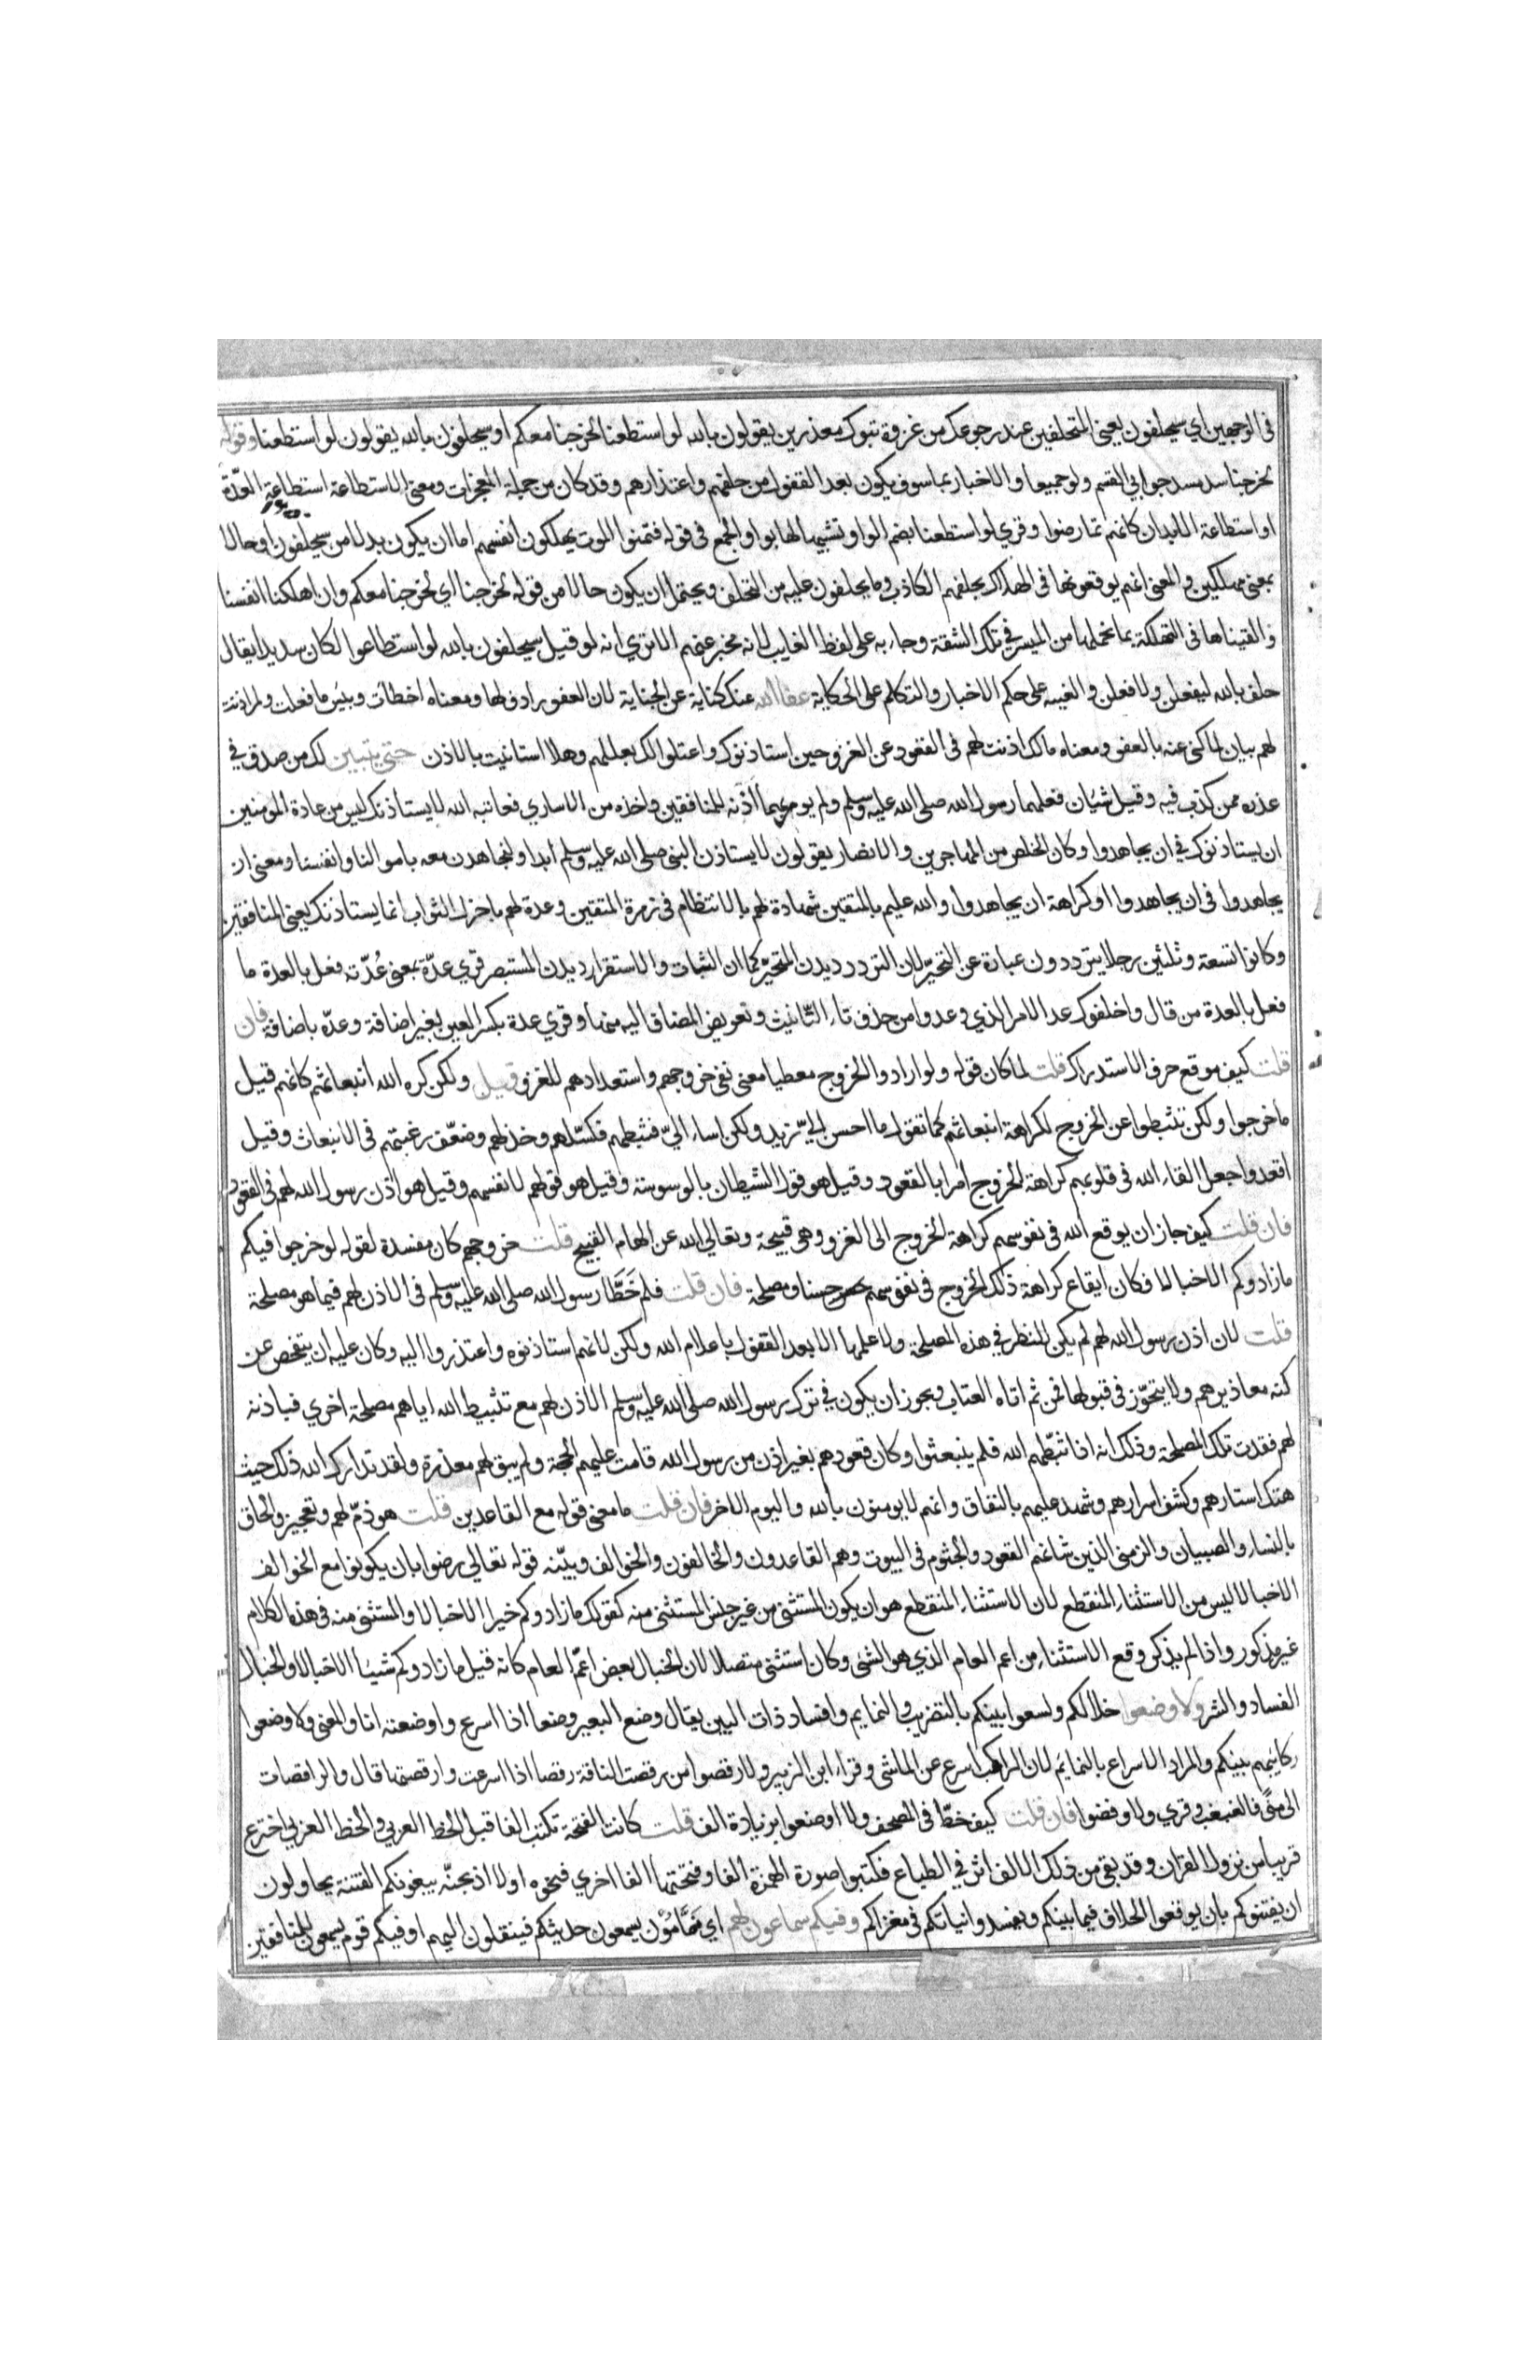 في الوجهين اي سيحلفون يعني المتخلفين عند رجوعك من غزوة تبوك معذرين يقولون بالله لو استطعنا لخرجنا معكم او سيحلفون بالله يقولون لو استطعنا وقوله
لخرجنا سد مسد جوابي القسم ولو جميعا والاخبار بما سوف يكون بعد القفول من حلفهم واعتذارهم وقد كان من جملة المعجزات ومعنى الاستطاعة استطاعة العدّة
او استطاعة الابدان كانهم تمارضوا وقري لو استطعنا بضم الواو تشبيها لها بواو الجمع في قوله فتمنوا الموت يهلكون انفسهم اما ان يكون بدلا من سيحلفون او حالا
بمعنى مهلكين والمعنى انهم يوقعونها في الهلاك بحلفهم الكاذب وما يحلفون عليه من التخلف ويحتمل ان يكون حالا من قوله لخرجنا اي لخرجنا معكم وان اهلكنا انفسنا
والقيناها في التهلكة بما نحملها من المسير في تلك الشقة وجاء به على لفظ الغايب لانه مخبر عنهم الا ترى انه لو قيل سيحلفون بالله لو استطاعوا لكان سديدا يقال
حلف بالله ليفعلن ولافعلن والغيبه على حكم الاخبار والتكلم على الحكاية عفا الله عنك كناية عن الجناية لان العفو رادف لها ومعناه اخطات وبيس ما فعلت ولم اذنت
لهم بيان لما كنى عنه بالعفو ومعناه مالك اذنت لهم في القعود عن الغزو حين استاذنوك واعتلوا لك بعللهم وهلا استانيت بالاذن حتى يتبين لك من صدق في
عذره ممن كذب فيه وقيل شيان فعلهما رسول الله صلى الله عليه وسلم ولم يومر بهما اذنه للمنافقين واخذه من الاساري فعاتبه الله لا يستأذنك ليس من عادة المومنين
ان يستاذنوك في ان يجاهدوا وكان الخلص من المهاجرين والانصار يقولون لا يستاذن النبي صلى الله عليه وسلم ابدا ولنجاهدن معه باموالنا وانفسنا ومعنى ان
يجاهدوا في ان يجاهدوا او كراهة ان يجاهدوا والله عليم بالمتقين شهادة لهم بالانتظام في زمرة المتقين وعدة لهم باجزل الثواب انما يستاذنك يعني المنافقين
وكانوا تسعة وثلثين رجلا يترددون عبارة عن التحيّر لان التردد ديدن المتحيّر كما ان الثبات والاستقرار ديدن المستبصر قري عدّة بمعنى عُدّته فعل بالعدة ما
فعل بالعدة من قال واخلفوك عد الامر الذي وعدوا من حذف تاء التّانيث وتعويض المضاف اليه منها وقري عدة بكسر العين بغير اضافة وعدّه باضافة فان
قلت كيف موقع حرف الاستدراك قلت لما كان قوله ولو ارادوا الخروج معطيا معنى نفي خروجهم واستعدادهم للغزو قيل ولكن كره الله انبعاثهم كانهم قيل
ما خرجوا ولكن تثبطوا عن الخروج لكراهة انبعاثهم كما تقول ما احسن اليّ زيد ولكن اساء اليّ فثبطهم فكسّلهم وخذلهم وضعّف رغبتهم في الانبعاث وقيل
اقعدوا جعل القاء الله في قلوبهم كراهة الخروج أمرا بالقعود وقيل هو قول الشيطان بالوسوسة وقيل هو قولهم لانفسهم وقيل هو اذن رسول الله لهم في القعود
فان قلت كيف جاز ان يوقع الله في نفوسهم كراهة الخروج الى الغزو وهي قبيحة وتعالى الله عن الهام القبيح قلت خروجهم كان مفسدة لقوله لو خرجوا فيكم
مازادوكم الا خبالا فكان ايقاع كراهة ذلك الخروج في نفوسهم حسنا ومصلحة فان قلت فلم خَطَّا رسول الله صلى الله عليه وسلم في الاذن لهم فيما هو مصلحة
قلت لان اذن رسول الله لهم لم يكن للنظر في هذه المصلحة ولا علمها الا بعد القفول باعلام الله ولكن لانهم استاذنوه واعتذروا اليه وكان عليه ان يتفحص عن
كنه معاذيرهم ولا يتجوّز في قبولها فمن ثم اتاه العتاب ويجوز ان يكون في ترك رسول الله صلى الله عليه وسلم الاذن لهم مع تثبيط الله اياهم مصلحة اخري فباذنه
لهم فقدت تلك المصلحة وذلك انه اذا ثبّطهم الله فلم ينبعثوا وكان قعودهم بغير اذن من رسول الله قامت عليهم الحجة ولم يبق لهم معذرة ولقد تدارك الله ذلك حيث
هتك استارهم وكشف اسرارهم وشهد عليهم بالنفاق وانهم لا يومنون بالله واليوم الاخر فان قلت ما معنى قوله مع القاعدين قلت هو ذمّ لهم وتعجيز والحاق
بالنساء والصبيان والزمنى الذين شانهم القعود والجثوم في البيوت وهم القاعدون والخالفون والخوالف ويبيّنه قوله تعالى رضوا بان يكونوا مع الخوالف
الا خبالا ليس من الاستثناء المنقطع لان الاستثناء المنقطع هو ان يكون المستثنى من غير جنس المستثنى منه كقولك مازادوكم خيرا الا خبالا والمستثنى منه في هذه الكلام
غير مذكور واذا لم يذكر وقع الاستثناء من اعم العام الذي هو الشي وكان استثنى متصلا لان الخبال بعض اعمّ العام كانه قيل ما زادوكم شيئا الا خبالا والخبال
الفساد والشر ولا وضعوا خلالكم ولسعوا بينكم بالتضريب والنمايم وافساد ذات البين يقال وضع البعير وضعا اذا اسرع واوضعته انا والمعنى ولا وضعوا
ركايبهم بينكم والمراد الاسراع بالنمايم لان الراكب اسرع عن الماشي وقراء ابن الزبير ولا رقصوا من رقصت الناقة رقصا اذا اسرعت وارقصتها قال والراقصات
الى منًى فالغبغب وقري ولا وفضوا فان قلت كيف خطّ في المصحف ولا اوضعوا بزيادة الف قلت كانت الفتحة تكتب الفا قبل الخط العربي والخط العربي اخترع
قريبا من نزول القران وقد بقي من ذلك الالف اثر في الطباع فكتبوا صورة الهمزة الفا وفتحتها الفا اخري فنحوه اولا اذبحنّه يبغونكم الفتنة يحاولون
ان يفتنوكم بان يوقعوا الخلاف فيما بينكم ويفسدوا نياتكم في مغزاكم وفيكم سماعون لهم اي نَمَّامُوْن يسمعون حديثكم فينقلون اليهم او فيكم قوم يسمعون للمنافقين